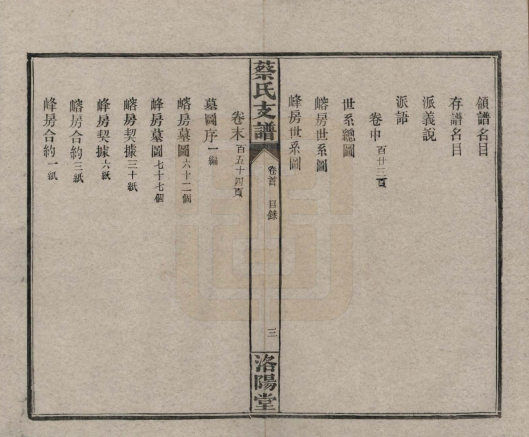 領譜名目
存譜名目
派義說
派語
卷中 百廿三頁
世系總圖
嵱房世系圖
峰房世系圖
蔡氏支譜
卷首 目錄
三
洛陽堂
卷末 百五十四頁
墓圖序 一個
嵱房墓圖 六十二個
峰房墓圖 七十七個
嵱房契據 三十紙
峰房契據 六紙
嵱房合約 三紙
峰房合約 一紙